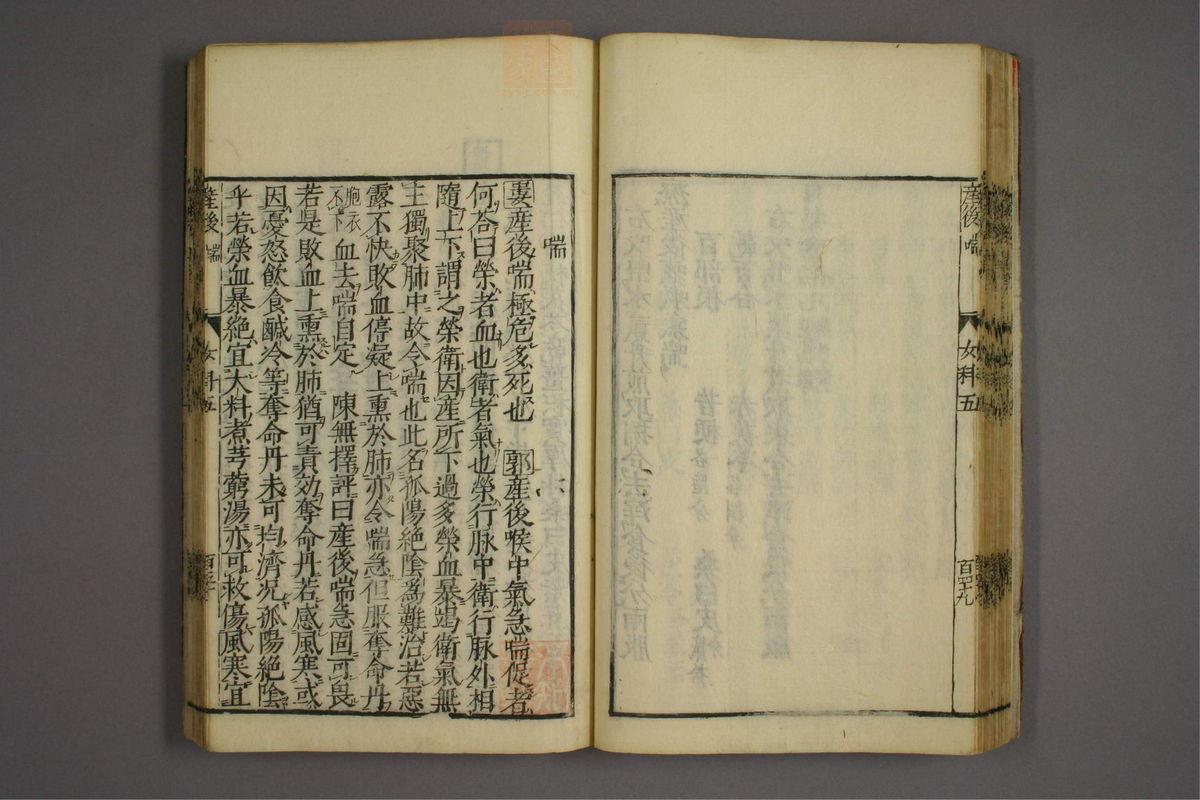 産後 喘
女科五
百四十九
喘
婁産後喘極危多死也 郭産後喉中氣急喘促者
何荅曰榮者血也衛者氣也榮行脉中衛行脉外相
隨上下謂之榮衛因産所下過多榮血暴竭衛氣無
主獨聚肺中故令喘也此名孤陽絶陰爲難治若惡
露不快敗血停凝上熏於肺亦令喘急但服奪命丹
胞衣不下血去喘自定 陳無擇評曰産後喘急固可畏
若是敗血上熏於肺猶可責効奪命丹若感風寒或
因憂怒飲食鹹冷等奪命丹未可均濟况孤陽絶陰
乎若榮血暴絶宜大料煮芎藭湯亦可救傷風寒宜
産後 喘
女科五